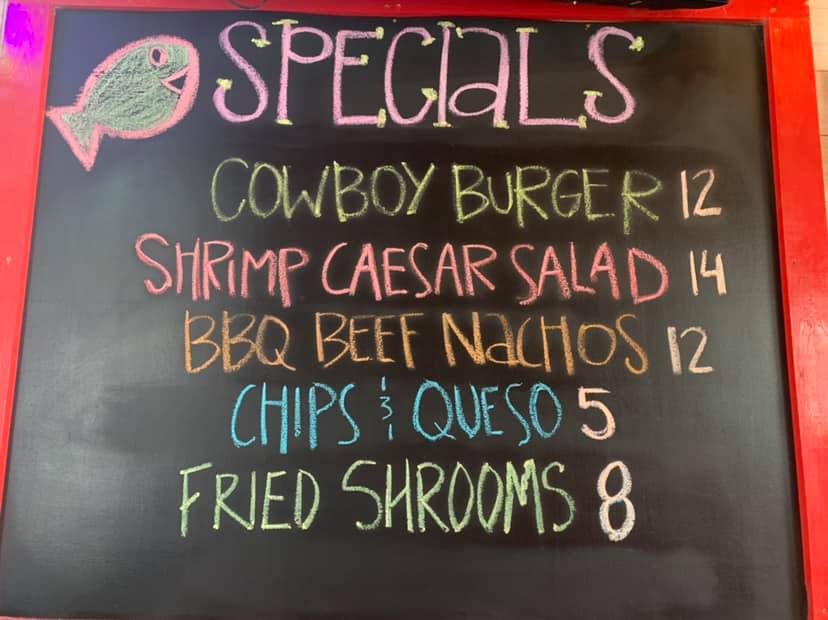 SPECIaLS
COWBOY BURGER 12
SHRiMP CAESAR SALAD 14
BBQ BEEF NaCHOS 12
CHIPS & QUESO 5
FRIED SHROOMS 8